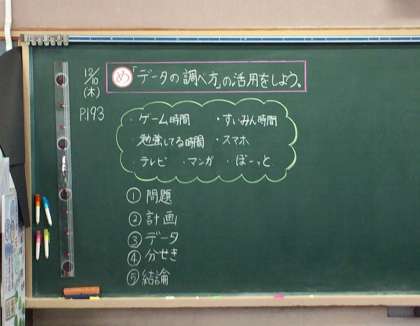 12/10
(木)
P193
め 「データの調べ方」の活用をしよう。
・ゲーム時間 ・すいみん時間
勉強してる時間 ・スマホ
・テレビ ・マンガ ・ぼーっと
① 問題
② 計画
③ データ
④ 分せき
⑤ 結論